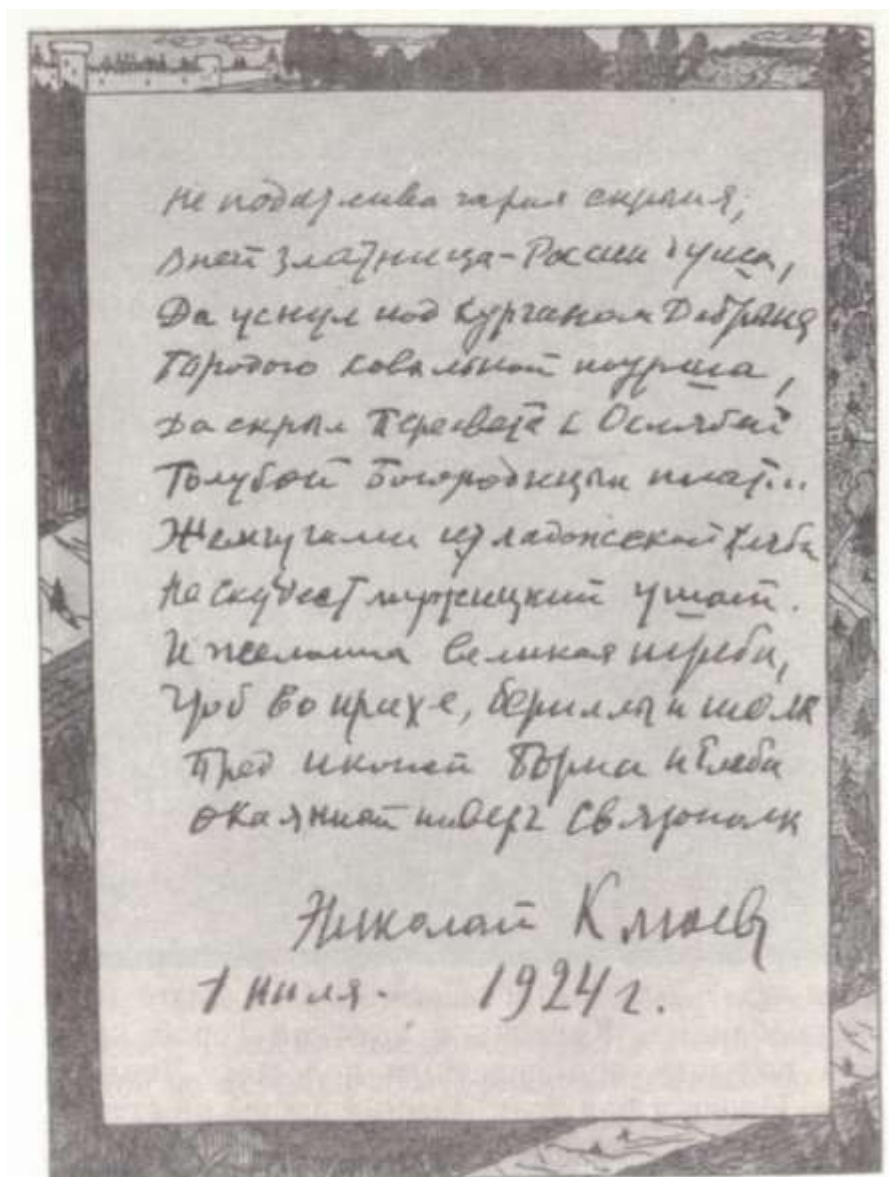 Не податлива чарая скрыня,
В ней златница - России душа,
Да уснул под курганом Добрыня
Бородою ковыльной шурша,
Да скрыл Пересвета с Ослябей
Голубой Богородицын плат...
Жемчугами из ладожской хляби
Не скудеет мужицкий ушат.
И желанна великая треба,
Чтоб во прахе, бериллы и шелк
Пред иконой Бориса и Глеба
Окаянный поверг Святополк
Николай Клюев
1 июля. 1924 г.